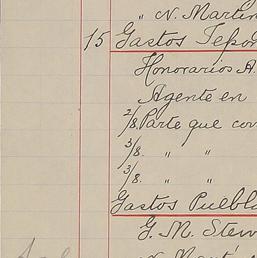 " N. Martin
15 Gastos Tepo
Honorarios A.
Agente en
2/8. Parte que cor
3/8. " "
3/8. " "
Gastos Puebla
G. M. Stew